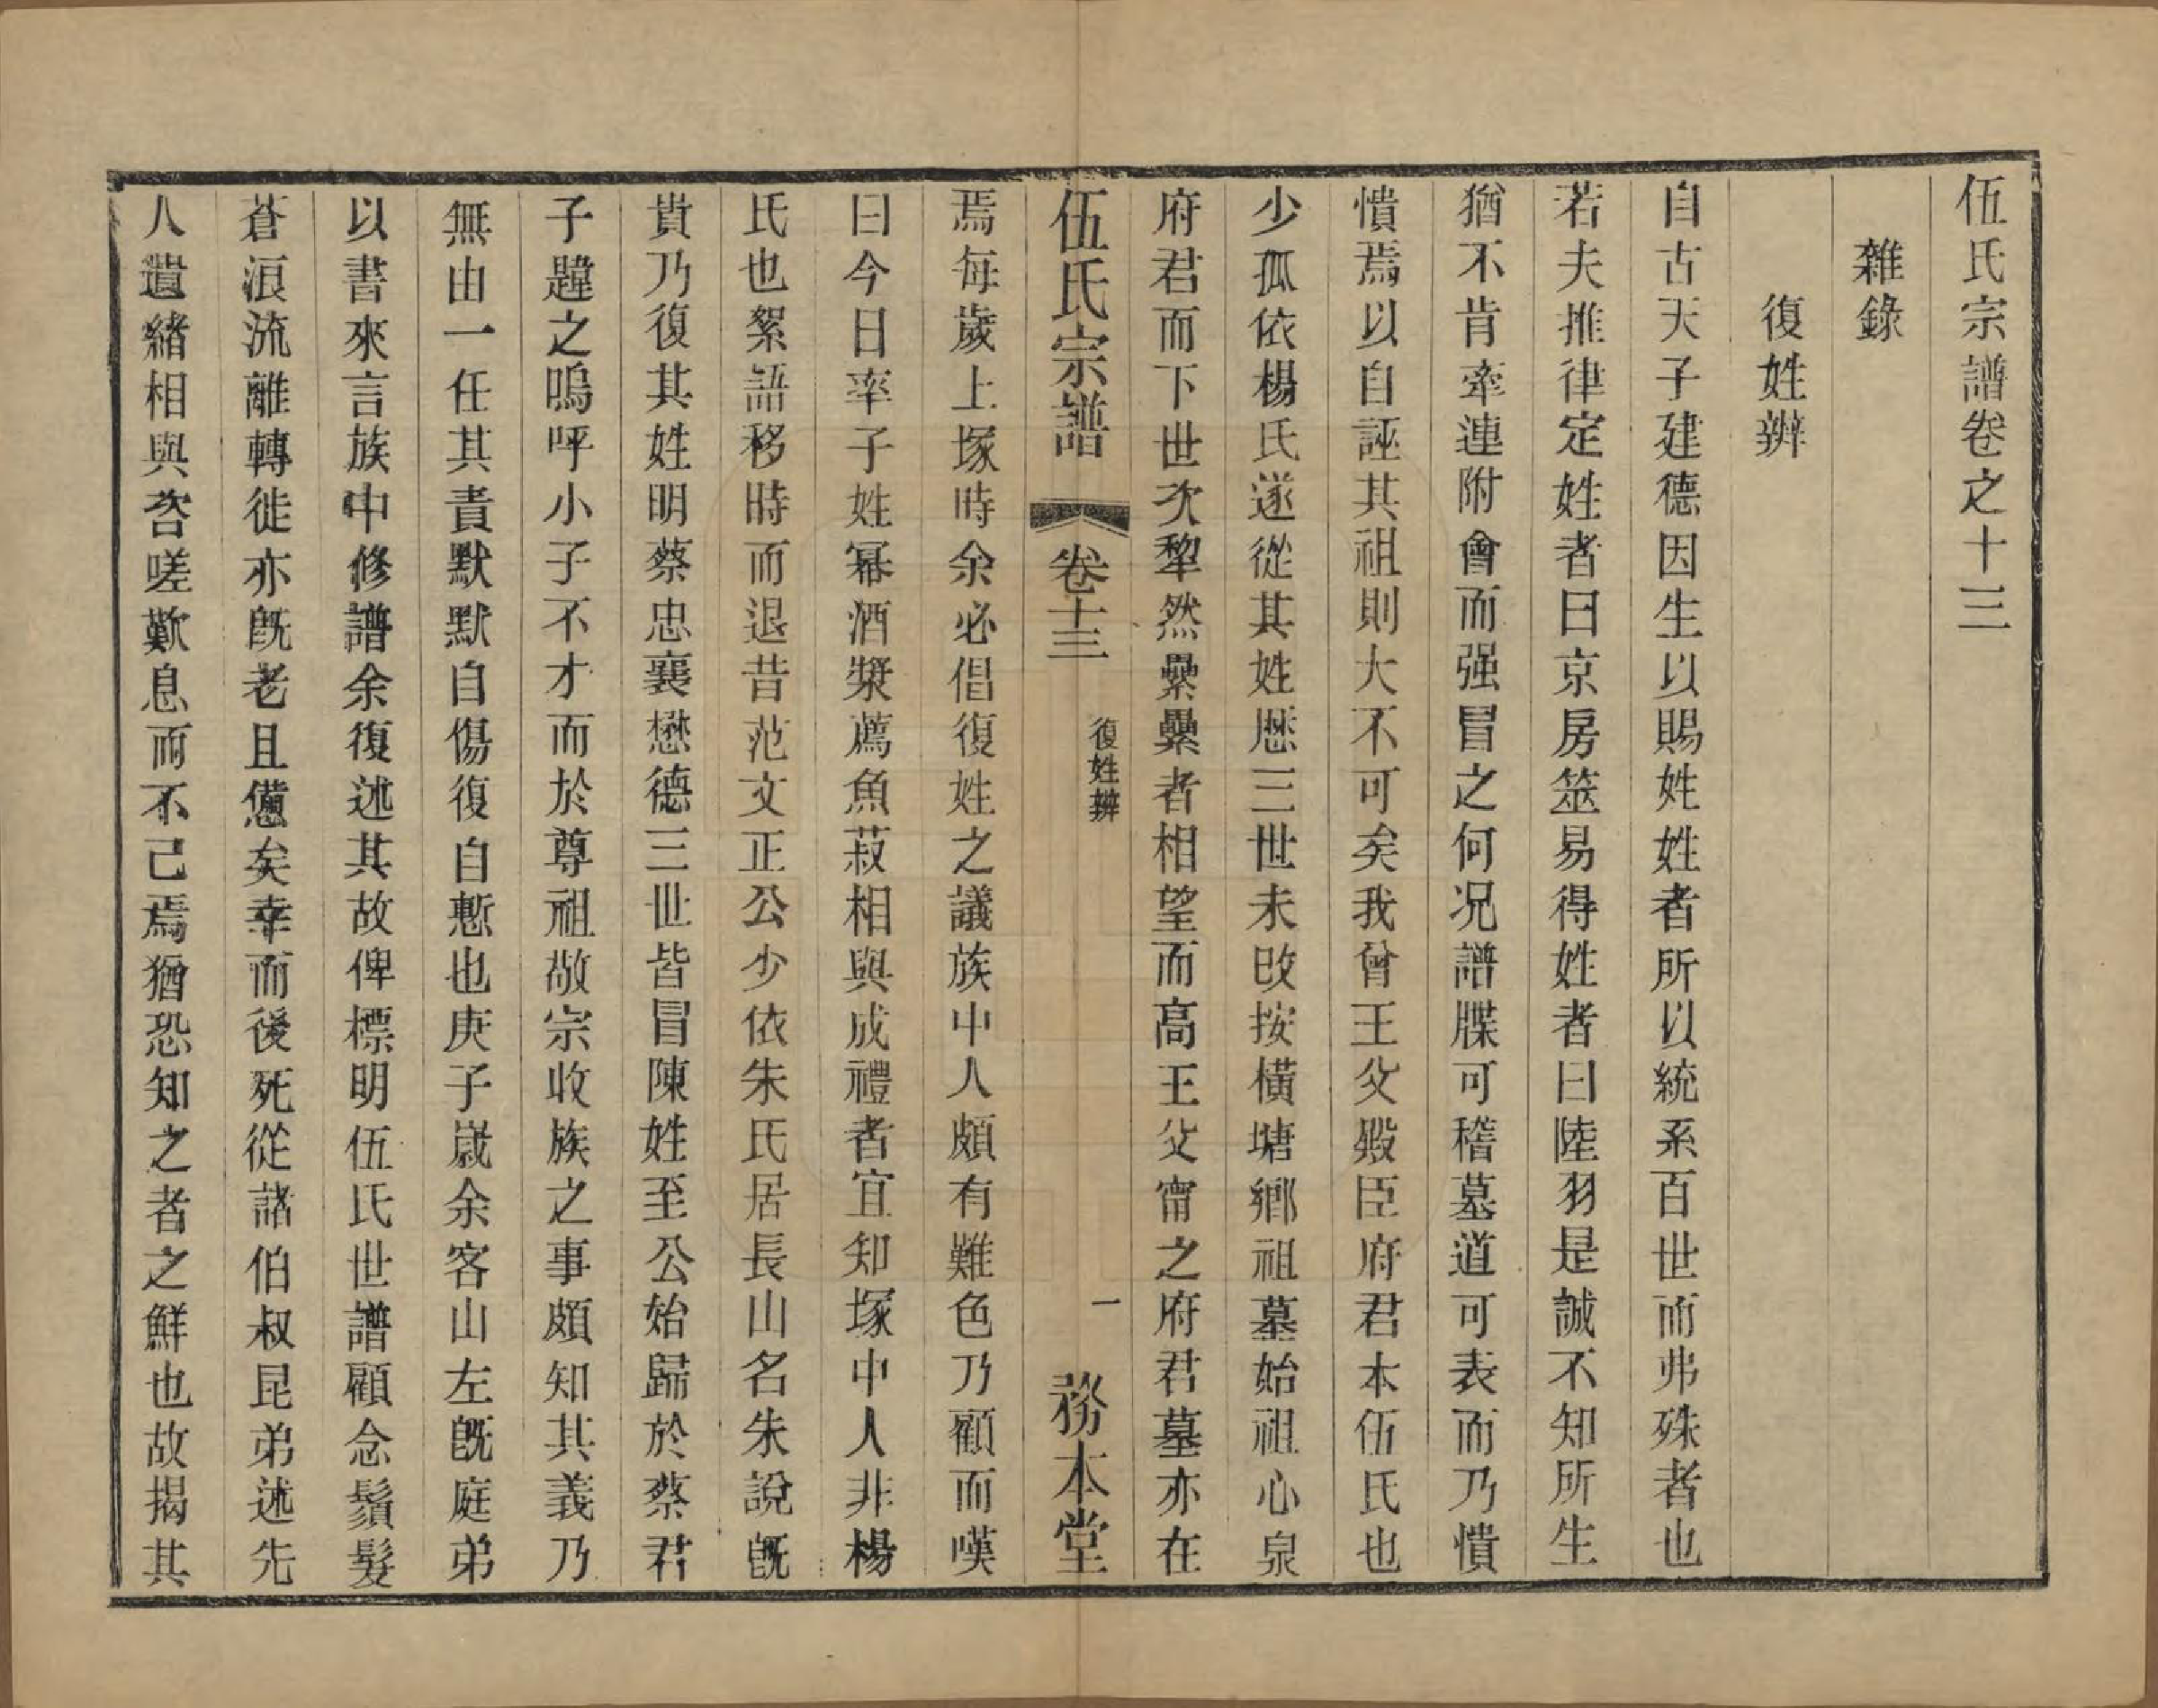 伍氏宗譜卷之十三
雜錄
復姓辨
自古天子建德因生以賜姓姓者所以統系百世而弗殊者也
若夫推律定姓者曰京房筮易得姓者曰陸羽是誠不知所生
猶不肯牽連附會而强冒之何况譜牒可稽墓道可表而乃憒
憒焉以自誣其祖則大不可矣我曾王父殿臣府君本伍氏也
少孤依楊氏遂從其姓歷三世未改按橫塘鄉祖墓始祖心泉
府君而下世次犂然纍纍者相望而高王父甯之府君墓亦在
伍氏宗譜 卷十三 復姓辨 一 務本堂
焉每歲上塚時余必倡復姓之議族中人頗有難色乃顧而嘆
曰今日率子姓冪酒漿薦魚菽相與成禮者宜知塚中人非楊
氏也絮語移時而退昔范文正公少依朱氏居長山名朱說旣
貴乃復其姓明蔡忠襄懋德三世皆冒陳姓至公始歸於蔡君
子韙之嗚呼小子不才而於尊祖敬宗收族之事頗知其義乃
無由一任其責默默自傷復自慙也庚子歲余客山左旣庭弟
以書來言族中修譜余復述其故俾標明伍氏世譜顧念鬚髮
蒼浪流離轉徙亦旣老且憊矣幸而後死從諸伯叔昆弟述先
人遺緖相與咨嗟歎息而不已焉猶恐知之者之鮮也故揭其